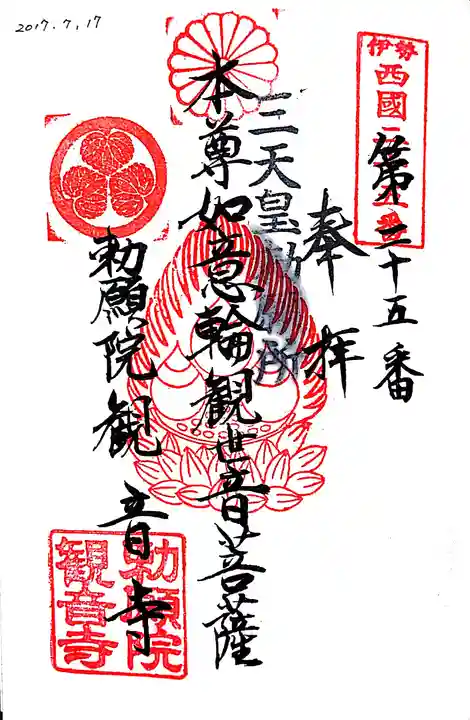 2017.7.17
伊勢
西國三十三ヶ所
第二十五番
奉拝
三天皇勅願所
本尊如意輪観世音菩薩
勅願院観音寺
勅願院
観音寺